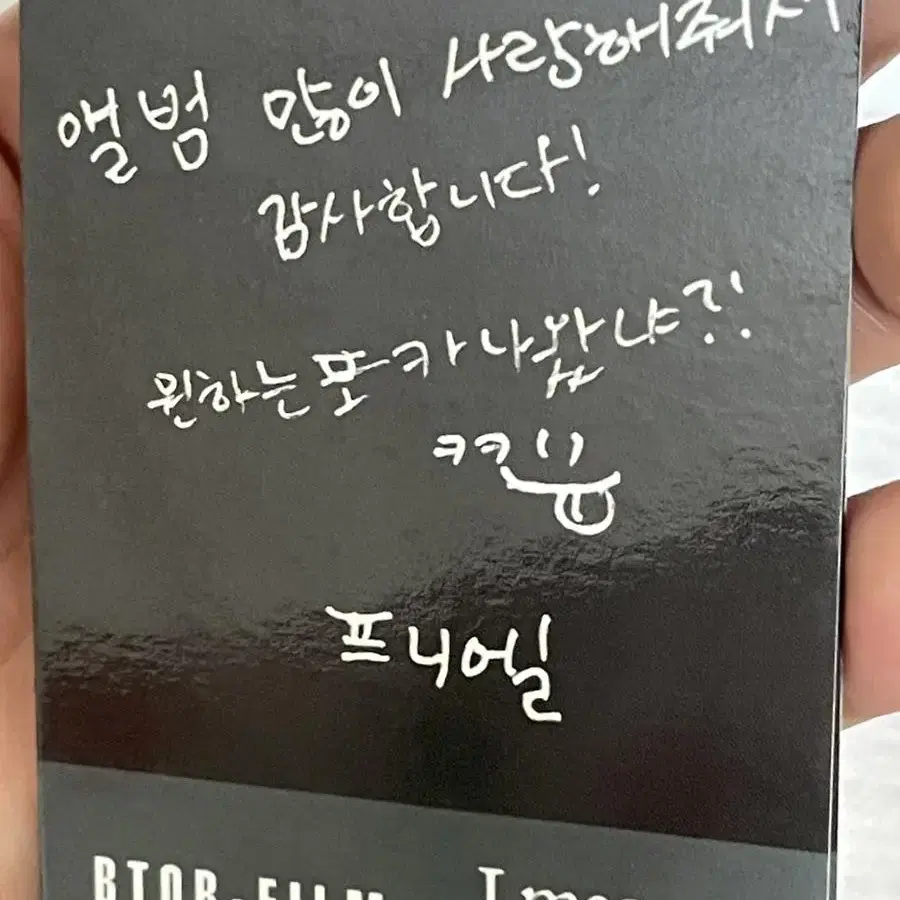 앨범 많이 사랑해줘서
감사합니다!
원하는 포카 나왔냐?!
ㅋㅋ
프니엘
BTOB·FILM